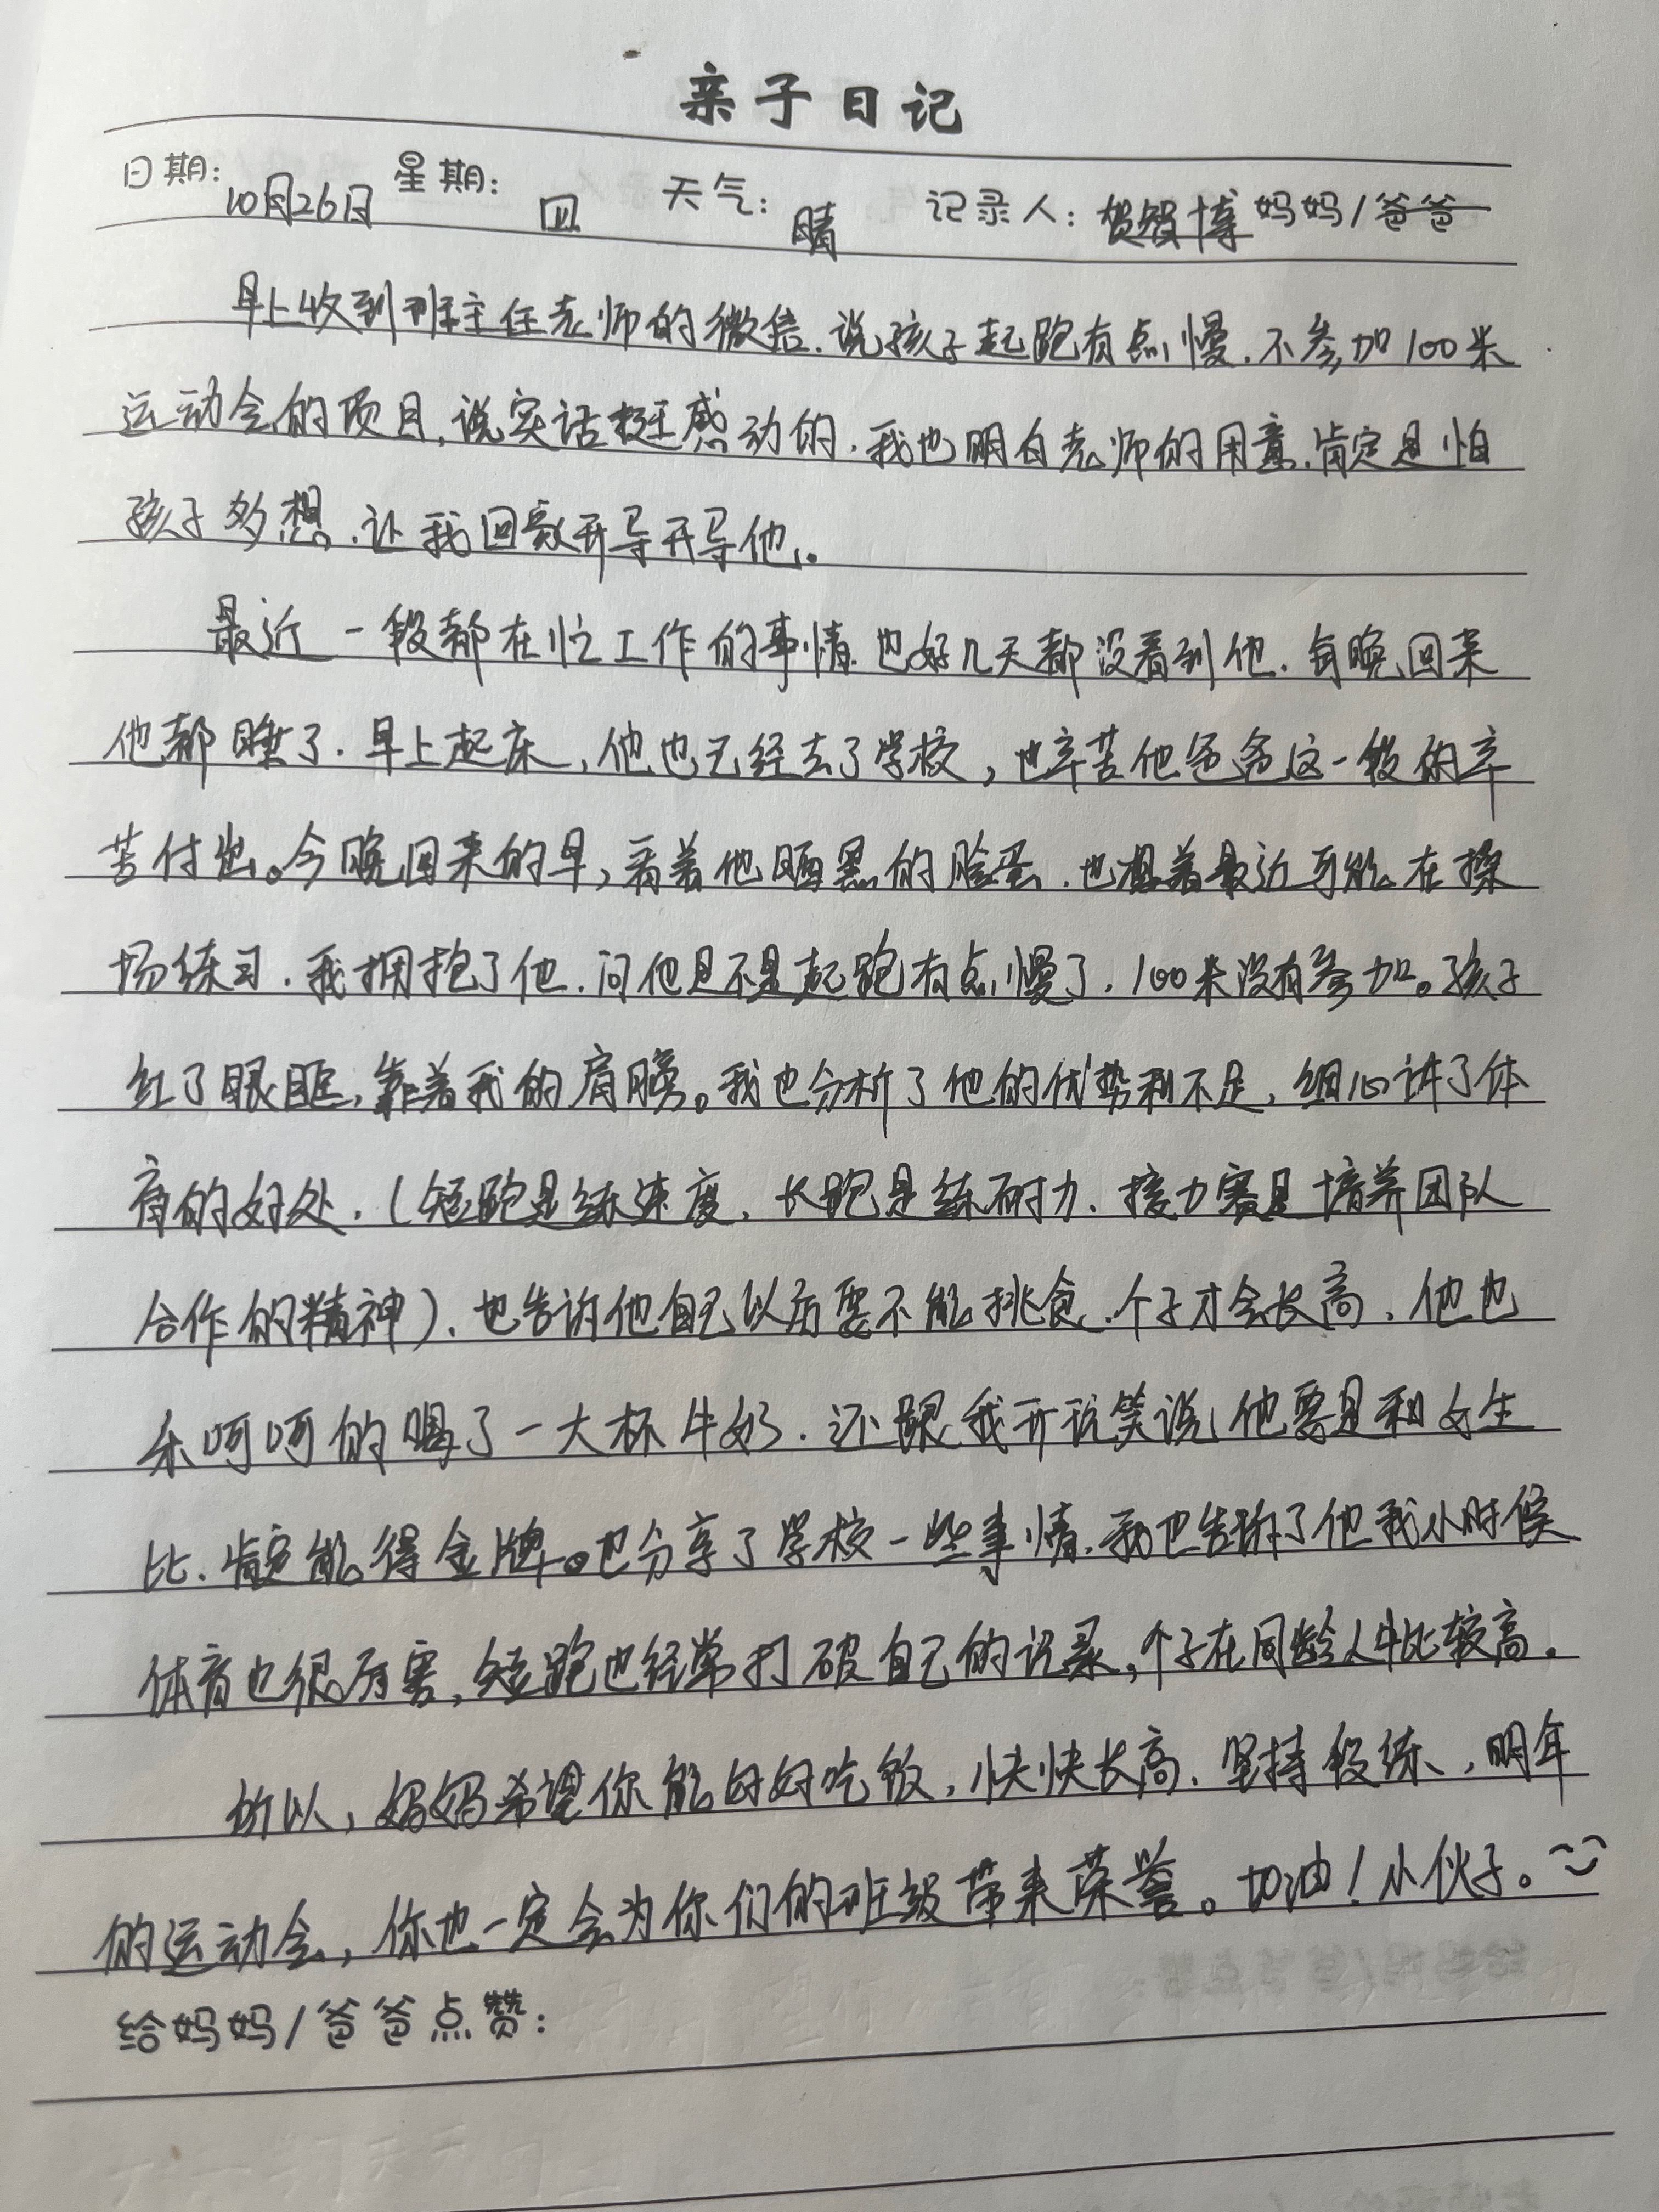 亲子日记
日期: 10月26日 星期: 四 天气: 晴 记录人: 贺智博妈妈/爸爸
早上收到班主任老师的微信.说孩子起跑有点慢.不参加100米
运动会的项目,说实话挺感动的.我也明白老师的用意.肯定是怕
孩子多想.让我回家开导开导他。
最近一段都在忙工作的事情.也好几天都没看到他.每晚回来
他都睡了.早上起床,他也已经去了学校,也辛苦他爸爸这一段的辛
苦付出。今晚回来的早,看着他晒黑的脸蛋.也想着最近可能在操
场练习.我拥抱了他.问他是不是起跑有点慢了.100米没有参加。孩子
红了眼眶,靠着我的肩膀。我也分析了他的优势和不足,细心讲了体
育的好处.(短跑是练速度,长跑是练耐力.接力赛是培养团队
合作的精神).也告诉他自己以后要不能挑食.个子才会长高.他也
乐呵呵的喝了一大杯牛奶.还跟我开玩笑说他要是和女生
比.肯定能得金牌。也分享了学校一些事情.我也告诉了他我小时候
体育也很厉害,短跑也经常打破自己的记录,个子在同龄人中比较高.
所以,妈妈希望你能好好吃饭,快快长高.坚持段练,明年
的运动会,你也一定会为你们的班级带来荣誉。加油!小伙子。
给妈妈/爸爸点赞: